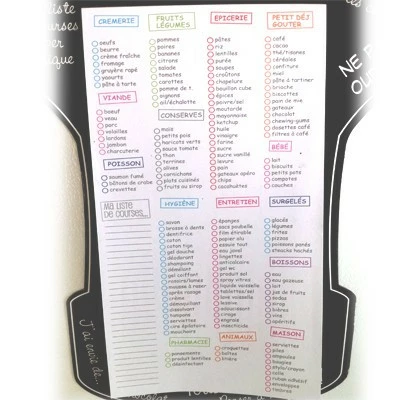 CREMERIE
oeufs
beurre
crème fraîche
fromage
gruyère rapé
yaourts
pâte à tarte
VIANDE
boeuf
veau
porc
volailles
lardons
jambon
charcuterie
POISSON
saumon fumé
bâtons de crabe
crevettes
Ma liste
de courses...
FRUITS
LÉGUMES
pommes
poires
bananes
citrons
salade
tomates
carottes
pomme de t.
oignons
ail/échalotte
CONSERVES
maïs
petits pois
haricots verts
sauce tomate
thon
terrines
olives
cornichons
plats cuisinés
fruits au sirop
HYGIÈNE
savon
brosse à dents
dentifrice
coton
coton tige
gel douche
déodorant
shampoing
démêlant
gel coiffant
rasoirs/lames
mousse à raser
après rasage
crème
démaquillant
dissolvant
tampons
serviettes
cire épilatoire
mouchoirs
PHARMACIE
pansements
produit lentilles
désinfectant
EPICERIE
pâtes
riz
lentilles
purée
soupes
croûtons
chapelure
bouillon cube
épices
poivre/sel
moutarde
mayonnaise
ketchup
huile
vinaigre
farine
sucre
sucre vanillé
levure
pain
chips
cacahuètes
ENTRETIEN
éponges
sacs poubelle
film étirable
papier alu
essuie tout
eau javel
dégraissant
lingettes
anticalcaire
gel wc
produit sol
spray vitres
liquide vaisselle
tablettes/sel
lave vaisselle
lessive
adoucissant
cirage
engrais
insecticide
ANIMAUX
croquettes
boîtes
litière
PETIT DÉJ
GOUTER
café
cacao
thé/tisanes
céréales
confiture
miel
pâte à tartiner
brioche
biscottes
pain de mie
gateaux
chocolat
chewing-gums
dosettes café
filtres à café
BÉBÉ
lait
biscuits
petits pots
compotes
couches
SURGELÉS
glacés
légumes
frites
pizzas
poissons panés
steacks hachés
BOISSONS
eau
eau gazeuse
lait
jus de fruits
sodas
sirop
bières
vins
apéritifs
MAISON
serviettes
piles
ampoules
bougies
étendre/crayon
colle
ruban adhésif
enveloppes
timbres
NE P
OU
J'ai envie de...